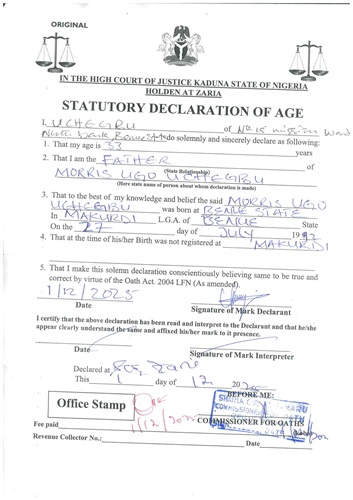 ORIGINAL
IN THE HIGH COURT OF JUSTICE KADUNA STATE OF NIGERIA
HOLDEN AT ZARIA
STATUTORY DECLARATION OF AGE
I, UCHEGBU of No 15 mission Ward
North bank Benue State do solemnly and sincerely declare as following:
1. That my age is 53 years
2. That I am the FATHER of
(State Relationship)
MORRIS UGO UCHEGBU
(Here state name of person about whom declaration is made)
3. That to the best of my knowledge and belief the said MORRIS UGO
UCHEGBU was born at BENUE STATE
In MAKURDI L.G.A. of BENUE State
On the 27 day of JULY 1992
4. That at the time of his/her Birth was not registered at MAKURDI
5. That I make this solemn declaration conscientiously believing same to be true and
correct by virtue of the Oath Act. 2004 LFN (As amended).
1/12/2025
Date
Signature of Mark Declarant
I certify that the above declaration has been read and interpret to the Declarant and that he/she
appear clearly understand the same and affixed his/her mark to it presence.
Date
Signature of Mark Interpreter
Declared at Zaria
This 1 day of 12 20
BEFORE ME:
Office Stamp
1/12/2025
COMMISSIONER FOR OATHS
Fee paid
Revenue Collector No.: Date